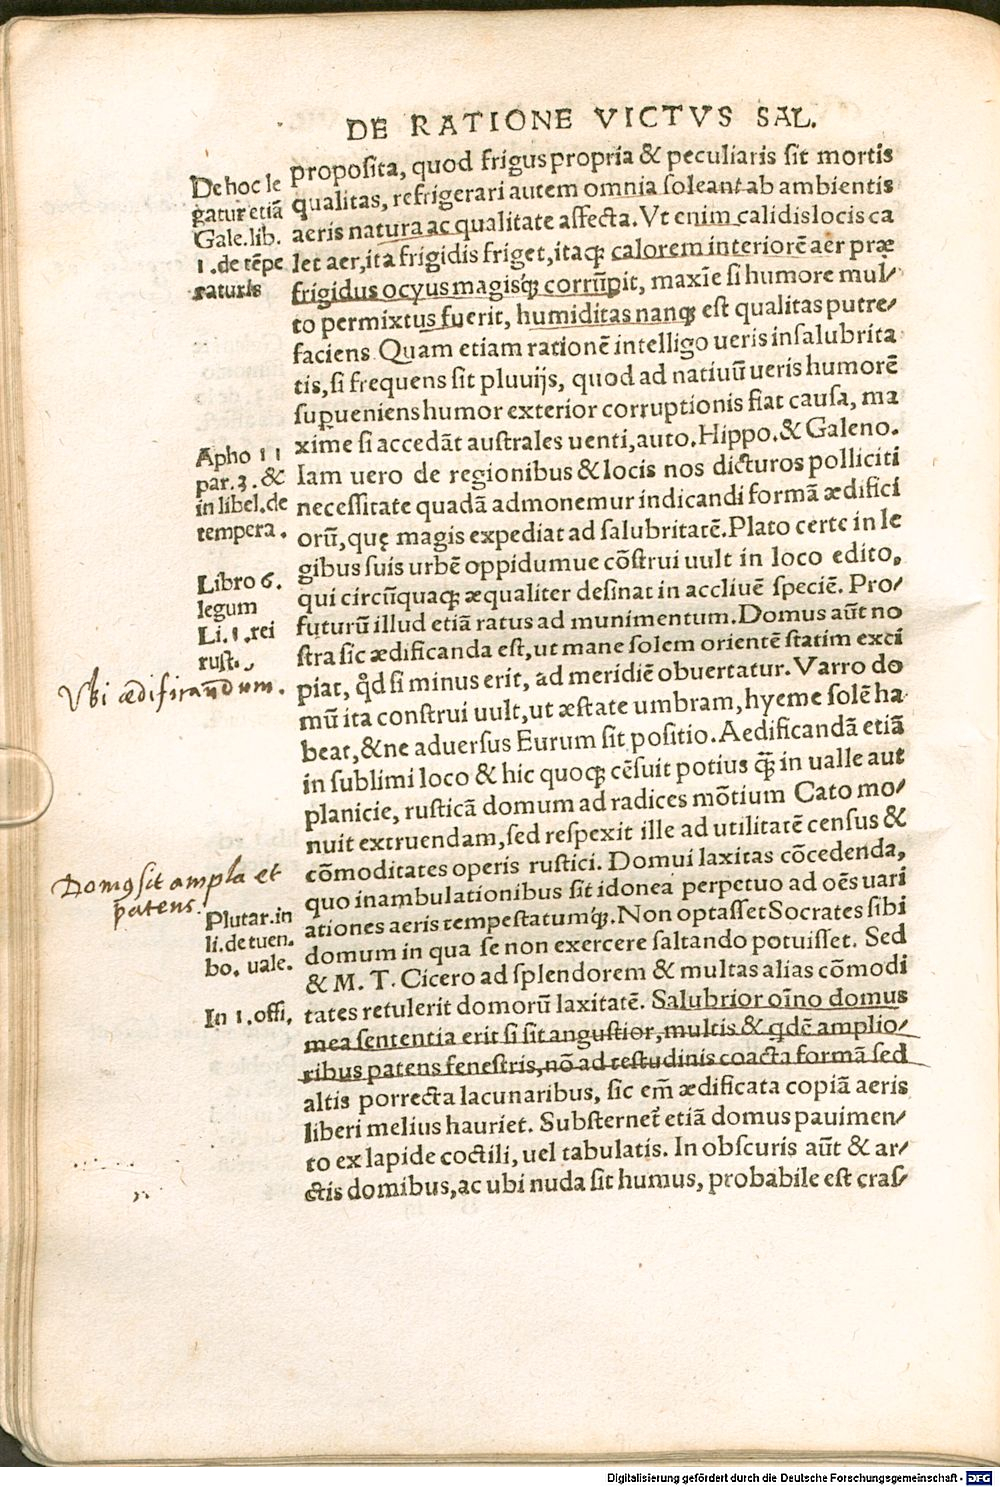 DE RATIONE VICTVS SAL.
proposita, quod frigus propria & peculiaris sit mortis
qualitas, refrigerari autem omnia soleant ab ambientis
aeris natura ac qualitate affecta. Vt enim calidis locis ca
let aer, ita frigidis friget, itaqȝ calorem interiorē aer præ
frigidus ocyus magisqȝ corrūpit, maxīe si humore mul/
to permixtus fuerit, humiditas nanqȝ est qualitas putre/
faciens. Quam etiam rationē intelligo ueris insalubrita
tis, si frequens sit pluuijs, quod ad natiuū ueris humorē
supueniens humor exterior corruptionis fiat causa, ma
xime si accedāt australes uenti, auto. Hippo. & Galeno.
Iam uero de regionibus & locis nos dicturos polliciti
necessitate quadā admonemur indicandi formā ædifici
orū, quę magis expediat ad salubritatē. Plato certe in le
gibus suis urbē oppidumue cōstrui uult in loco edito,
qui circūquaqȝ æqualiter desinat in accliuē speciē. Pro/
futurū illud etiā ratus ad munimentum. Domus aūt no
stra sic ædificanda est, ut mane solem orientē statim exci
piat, qd̄ si minus erit, ad meridiē obuertatur. Varro do
mū ita construi uult, ut æstate umbram, hyeme solē ha
beat, & ne aduersus Eurum sit positio. Aedificandā etiā
in sublimi loco & hic quoqȝ cēsuit potius q̄ȝ in ualle aut
planicie, rusticā domum ad radices mōtium Cato mo/
nuit extruendam, sed respexit ille ad utilitatē census &
cōmoditates operis rustici. Domui laxitas cōcedenda,
quo inambulationibus sit idonea perpetuo ad oēs uari
ationes aeris tempestatumqȝ. Non optasset Socrates sibi
domum in qua se non exercere saltando potuisset. Sed
& M. T. Cicero ad splendorem & multas alias cōmodi
tates retulerit domorū laxitatē. Salubrior oīno domus
mea sententia erit si sit angustior, multis & qdē amplio/
ribus patens fenestris, nō ad testudinis coacta formā sed
altis porrecta lacunaribus, sic em̄ ædificata copiā aeris
liberi melius hauriet. Substernet̄ etiā domus pauimen/
to ex lapide coctili, uel tabulatis. In obscuris aūt & ar/
ctis domibus, ac ubi nuda sit humus, probabile est cras/
De hoc le
gatur etiā
Gale. lib.
1. de tēpe
raturis
Apho 11
par. 3. &
in libel. de
tempera.
Libro 6.
legum
Li. 1. rei
rust.
Vbi ædificandum.
Domus sit ampla et
patens.
Plutar. in
li. de tuen.
bo. uale.
In 1. offi,
Digitalisierung gefördert durch die Deutsche Forschungsgemeinschaft - DFG